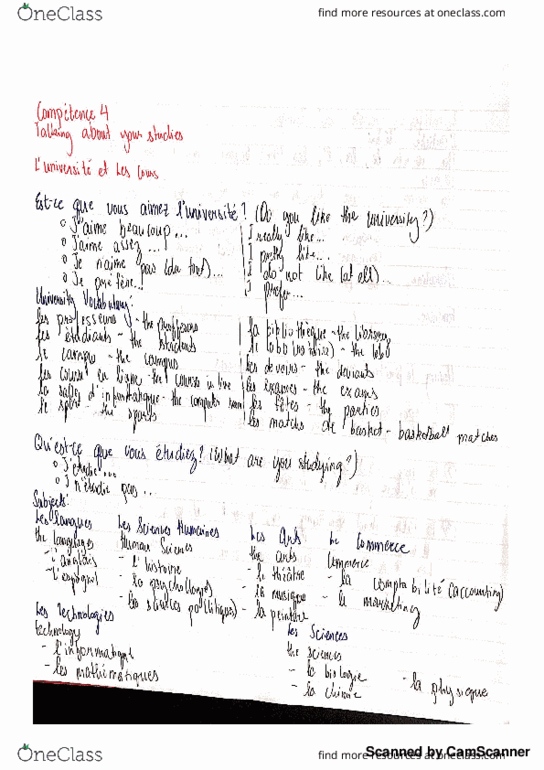 OneClass
find more resources at oneclass.com
Compétence 4
Talking about your studies
L'université et Les Cours
Est-ce que vous aimez l'université? (Do you like the university?)
o J'aime beaucoup... I really like...
o J'aime assez... I pretty like...
o Je n'aime pas (du tout)... I do not like (at all)...
o Je préfère! I prefer...
University Vocabulary:
les professeurs - the professors
les étudiants - the students
le campus - the campus
les cours en ligne - the course in line
la salle d'informatique - the computer room
le sport - the sports
la bibliothèque - the library
le labo - the labo
les devoirs - the
les examens - the exams
les fêtes - the parties
les matchs de basket - basketball matches
Qu'est-ce que vous étudiez? (What are you studying?)
o J'étudie...
o Je n'étudie pas...
Subjects:
Les langues
the languages
- l'anglais
- l'espagnol
Les Sciences Humaines
Human Sciences
- l'histoire
- la psychologie
- les sciences politiques
Les Arts
the arts
- le théâtre
- la musique
- la peinture
Le Commerce
Commerce
- la comptabilité (accounting)
- le marketing
Les Technologies
technology
- l'informatique
- les mathématiques
Les Sciences
the sciences
- la biologie
- la chimie
- la physique
Scanned by CamScanner
OneClass
find more resources at oneclass.com